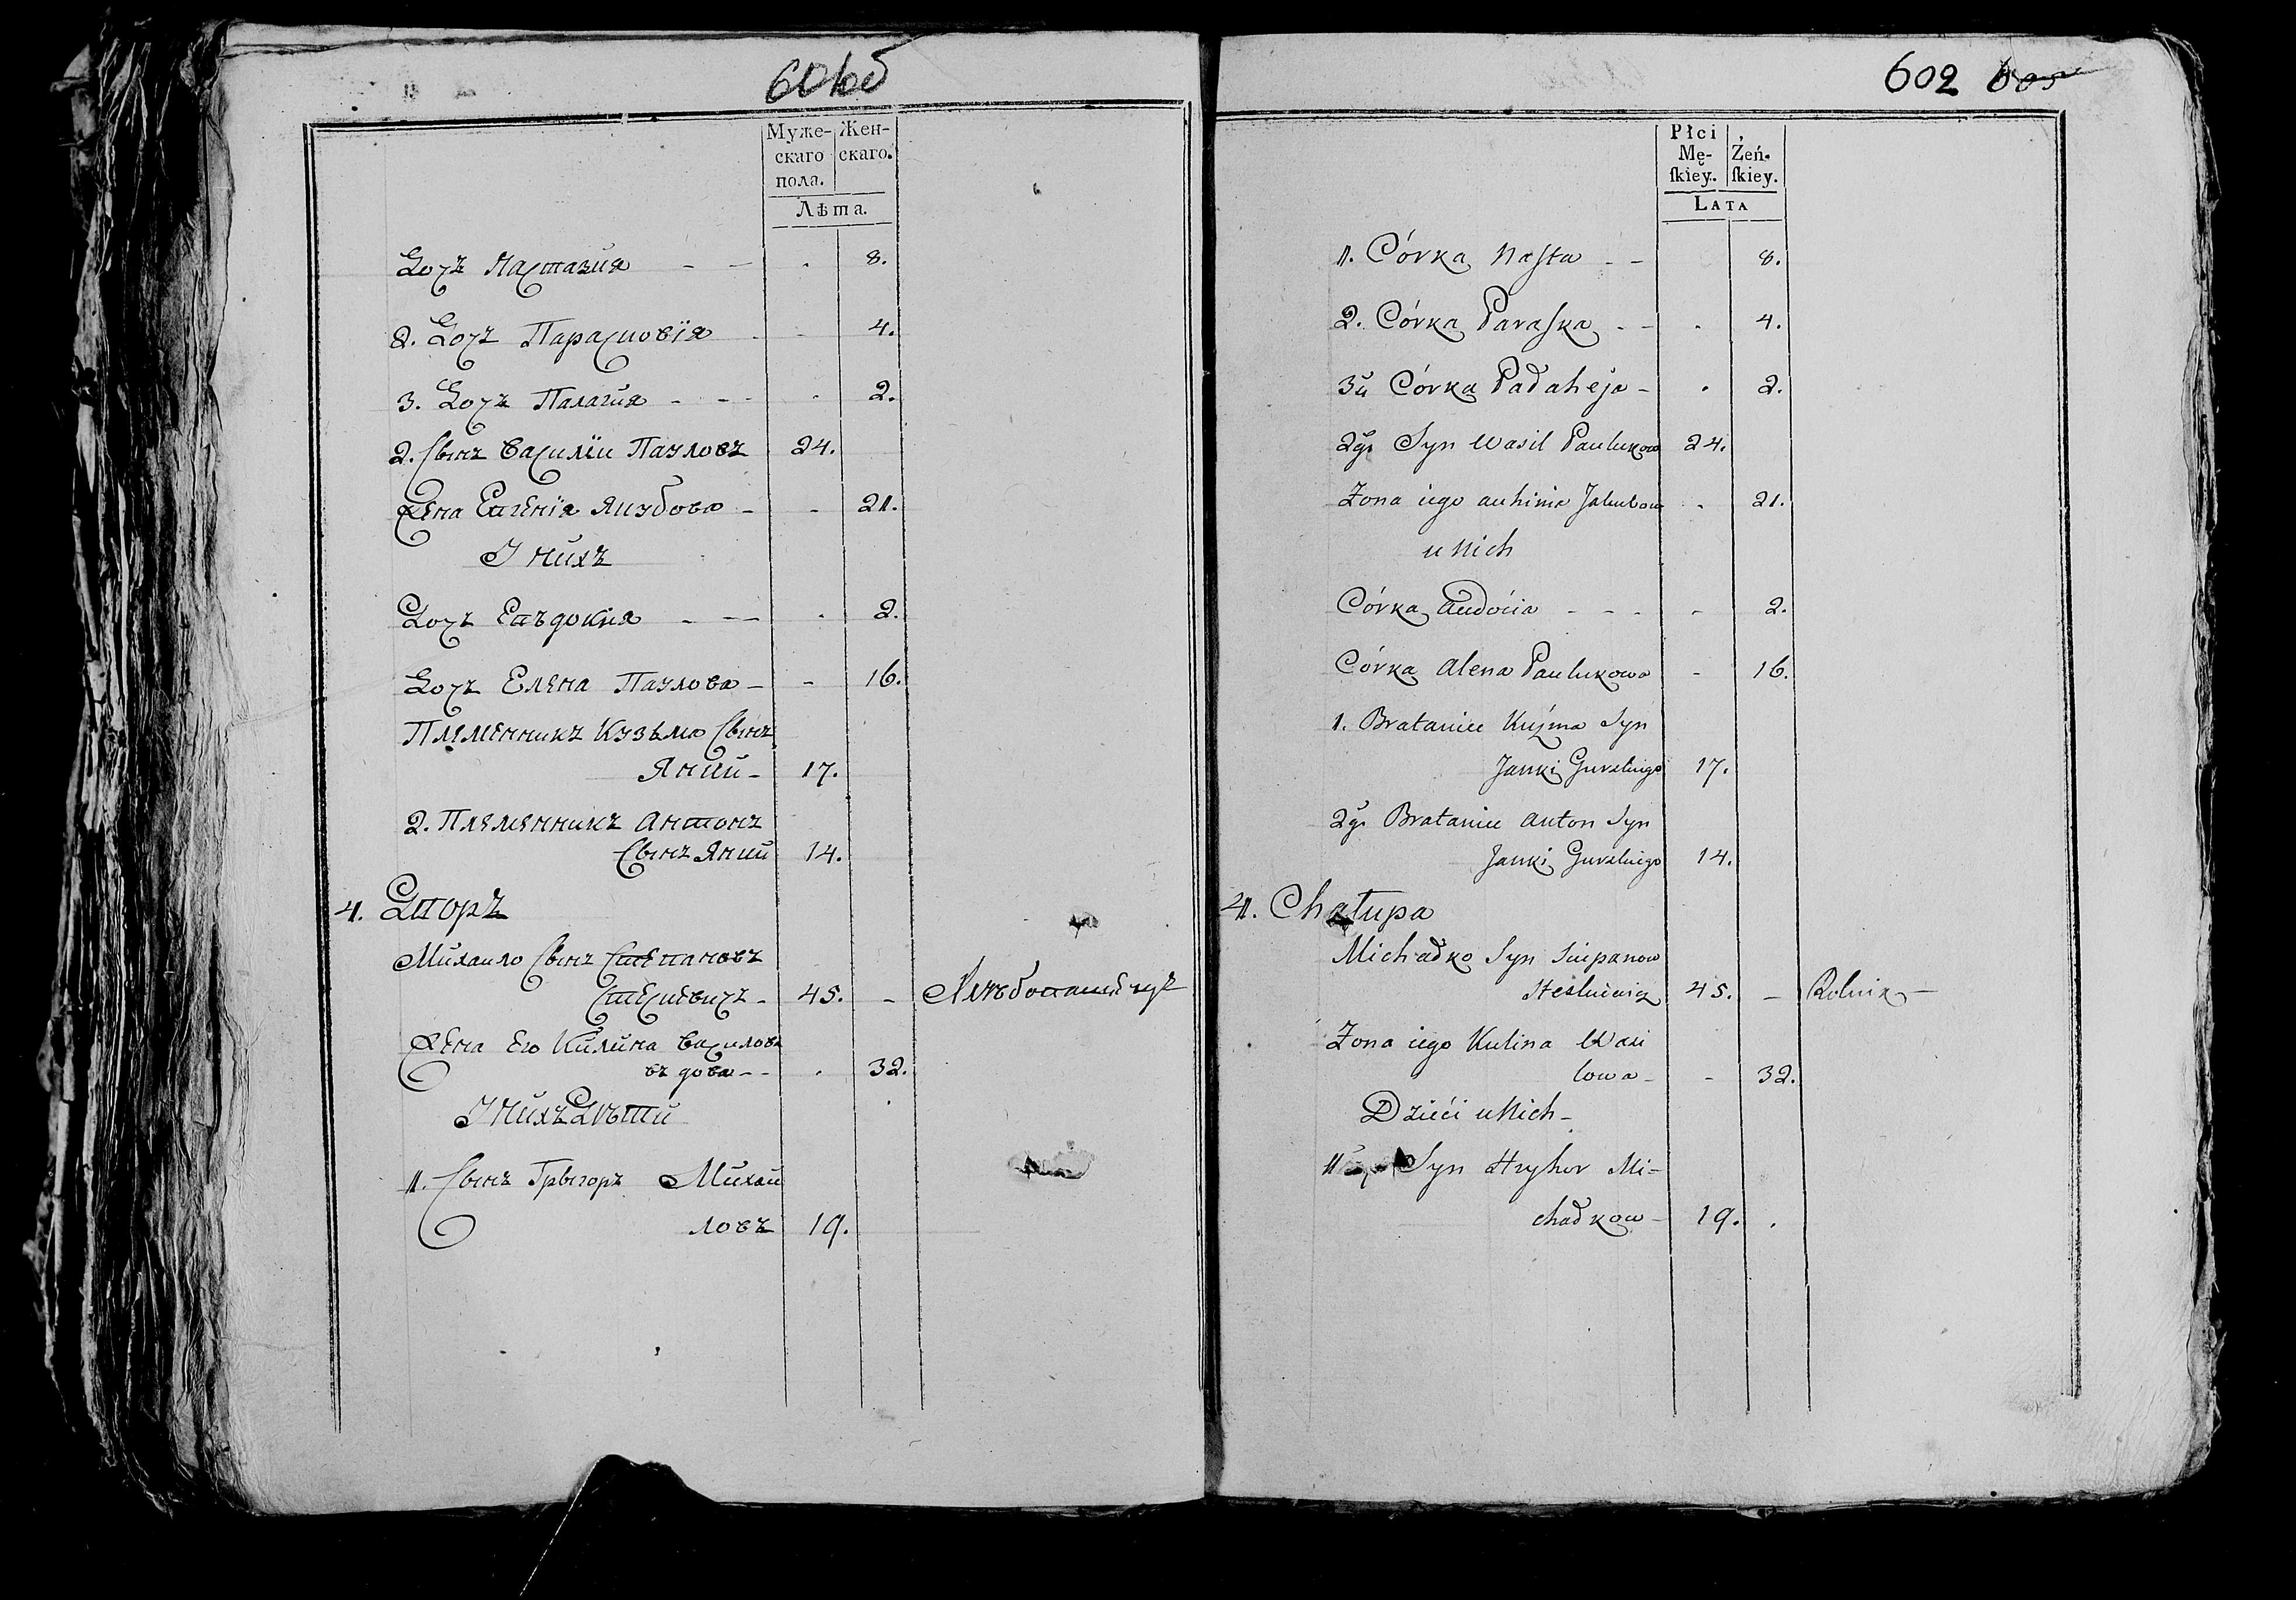 601об
Муже-
скаго
пола.
Жен-
скаго.
Лѣта.
Дочъ Настазия - - . 8.
2. Дочъ Парасковія - - 4.
3. Дочъ Палагия - - - . 2.
2. Сынъ Василiи Паулoвъ 24.
Жена Евгенія Якубова - - 21.
У нихъ
Дочъ Евъдокия - - - . 2.
Дочъ Елена Паулова - - 16.
Племенникъ Кузьма Сынъ
Янки - 17.
2. Племенникъ Антонъ
Сынъ Янки 14.
4. Дворъ
Михаило Сынъ Степановъ
Стескевичъ - 45. - Хлѣбопашецъ
Жена Его Килина Василова
въдова - - . 32.
У Нихъ Дѣти
1. Сынъ Грыгоръ Михаи
ловъ 19.
602 605
Płci
Mę-
ſkiey.
Zeń-
ſkiey.
LATA
1. Córka Naſta - - 8.
2. Córka Paraſka - - . 4.
3a Córka Pałaheja - . 2.
2gi Syn Wasil Paulukow 24.
Zona iego Auhinia Jakubowa - 21.
u Nich
Córka Audocia - - - - 2.
Córka Alena Paulukowa - 16.
1. Bratanicc Kuźma Syn
Janki 17.
2gi Bratanicc Anton Syn
Janki 14.
4. Chałupa
Michałko Syn Sciepanow
Steskiewicz 45. - Rolnik -
Zona iego Kulina Wasi
lowa - - 32.
Dzieći u Nich -
1 Syn Hryhor Mi-
chałkow - 19. .